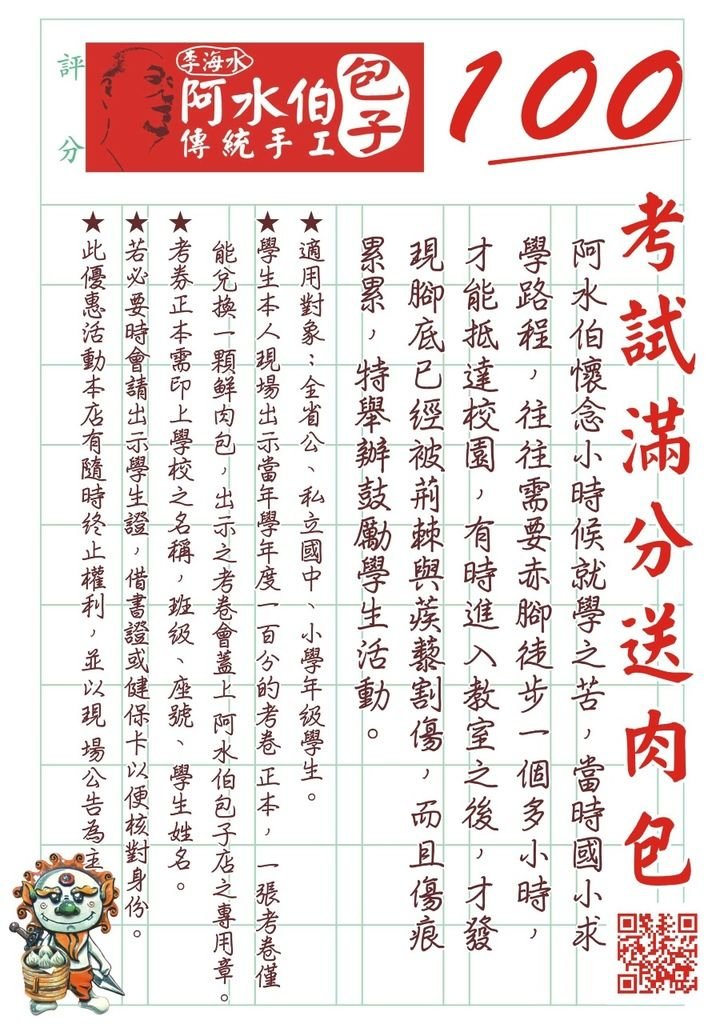 評分
李海水
阿水伯
傳統手工
包子
100
考試滿分送肉包
阿水伯懷念小時候就學之苦，當時國小求
學路程，往往需要赤腳徒步一個多小時，
才能抵達校園，有時進入教室之後，才發
現腳底已經被荊棘與蒺藜割傷，而且傷痕
累累，特舉辦鼓勵學生活動。
★適用對象：全省公、私立國中、小學年級學生。
★學生本人現場出示當年學年度一百分的考卷正本，一張考卷僅
能兌換一顆鮮肉包，出示之考卷會蓋上阿水伯包子店之專用章。
★考券正本需印上學校之名稱，班級、座號、學生姓名。
★若必要時會請出示學生證，借書證或健保卡以便核對身份。
★此優惠活動本店有隨時終止權利，並以現場公告為主